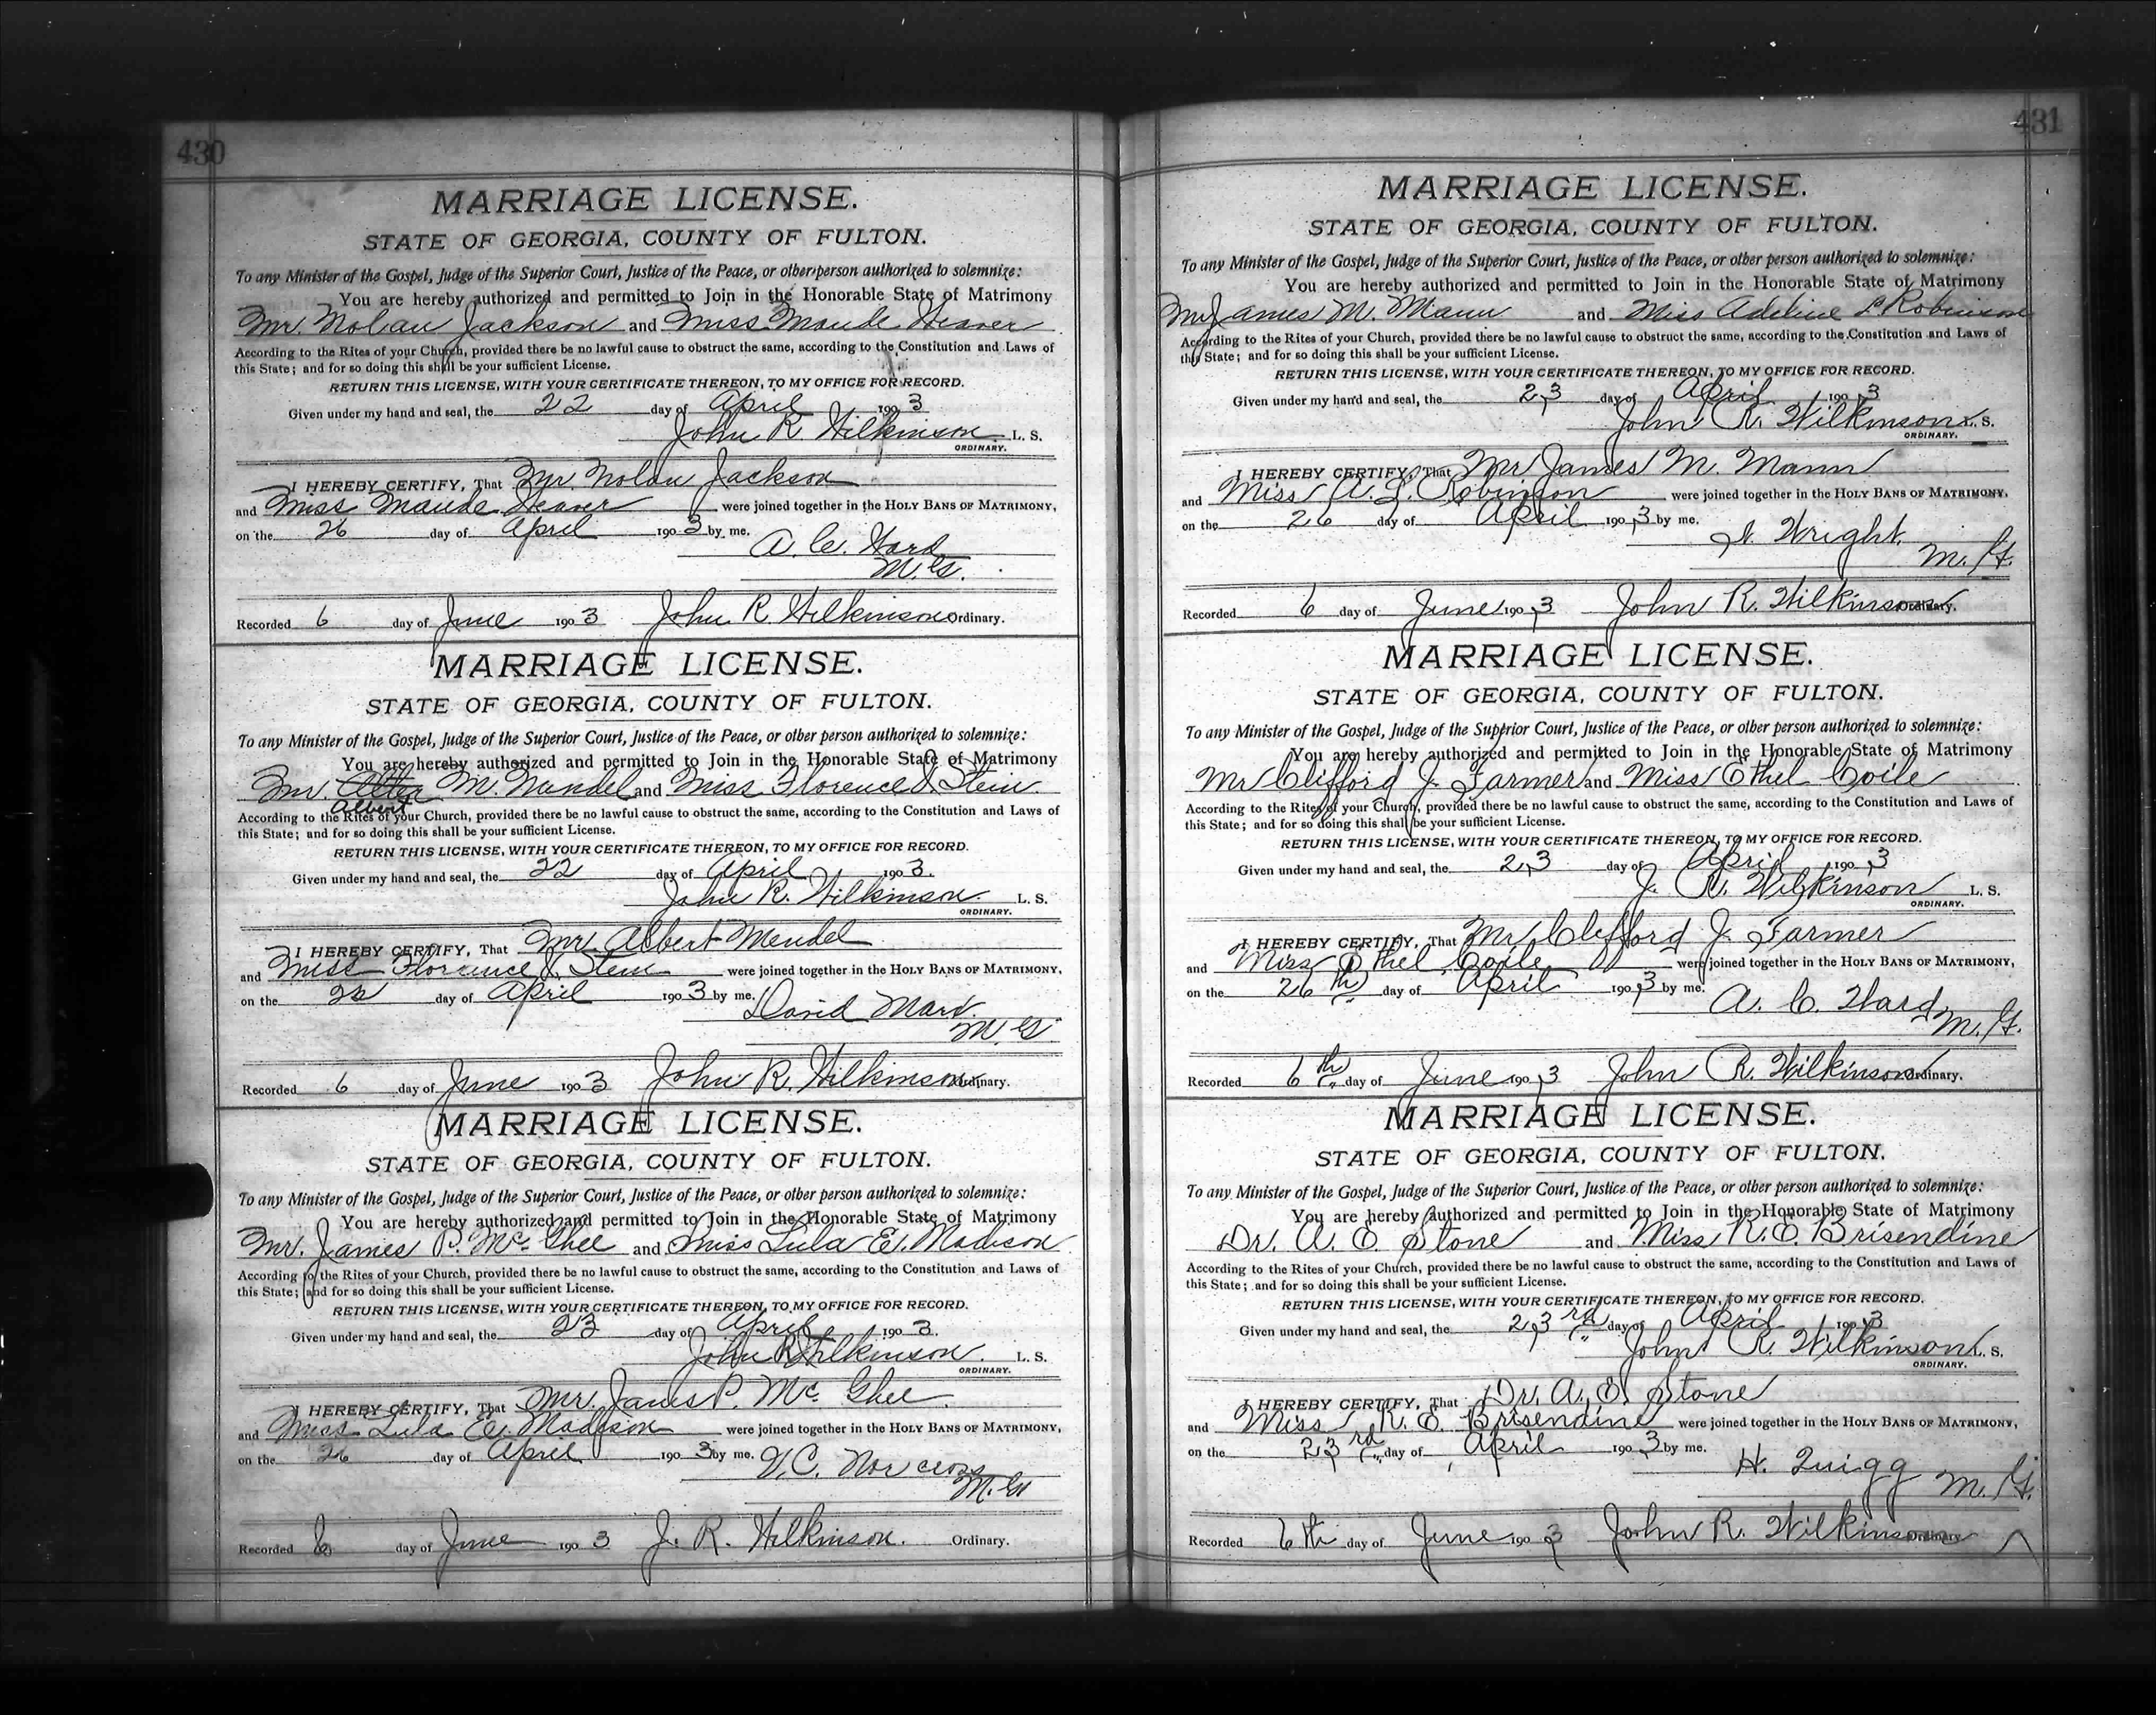 430
MARRIAGE LICENSE.
STATE OF GEORGIA, COUNTY OF FULTON.
To any Minister of the Gospel, Judge of the Superior Court, Justice of the Peace, or other person authorized to solemnize:
You are hereby authorized and permitted to Join in the Honorable State of Matrimony
Mr. Nolan Jackson and Miss Maude
According to the Rites of your Church, provided there be no lawful cause to obstruct the same, according to the Constitution and Laws of
this State; and for so doing this shall be your sufficient License.
RETURN THIS LICENSE, WITH YOUR CERTIFICATE THEREON, TO MY OFFICE FOR RECORD.
Given under my hand and seal, the 22 day of April 1903
John R. Wilkinson L. S.
ORDINARY.
I HEREBY CERTIFY, That Mr Nolan Jackson
and Miss Maude were joined together in the HOLY BANS OF MATRIMONY,
on the 26 day of April 1903 by me.
A. C. Ward
M.G.
Recorded 6 day of June 1903 John R. Wilkinson Ordinary.
MARRIAGE LICENSE.
STATE OF GEORGIA, COUNTY OF FULTON.
To any Minister of the Gospel, Judge of the Superior Court, Justice of the Peace, or other person authorized to solemnize:
You are hereby authorized and permitted to Join in the Honorable State of Matrimony
Mr M. Mendel and Miss Florence J. Stein.
Albert
According to the Rites of your Church, provided there be no lawful cause to obstruct the same, according to the Constitution and Laws of
this State; and for so doing this shall be your sufficient License.
RETURN THIS LICENSE, WITH YOUR CERTIFICATE THEREON, TO MY OFFICE FOR RECORD.
Given under my hand and seal, the 22 day of April 1903.
John R. Wilkinson. L. S.
ORDINARY.
I HEREBY CERTIFY, That Mr. Albert Mendel
and Miss Florence J. Stein were joined together in the HOLY BANS OF MATRIMONY,
on the day of April 1903 by me.
David Marx.
M.G.
Recorded 6 day of June 1903 John R. Wilkinson Ordinary.
MARRIAGE LICENSE.
STATE OF GEORGIA, COUNTY OF FULTON.
To any Minister of the Gospel, Judge of the Superior Court, Justice of the Peace, or other person authorized to solemnize:
You are hereby authorized and permitted to Join in the Honorable State of Matrimony
Mr. James P. McGhee and Miss Lula E. Madison
According to the Rites of your Church, provided there be no lawful cause to obstruct the same, according to the Constitution and Laws of
this State; and for so doing this shall be your sufficient License.
RETURN THIS LICENSE, WITH YOUR CERTIFICATE THEREON, TO MY OFFICE FOR RECORD.
Given under my hand and seal, the 23 day of April 1903.
John R Wilkinson. L. S.
ORDINARY.
I HEREBY CERTIFY, That Mr. James P. McGhee.
and Miss Lula E. Madison were joined together in the HOLY BANS OF MATRIMONY,
on the 26 day of April 1903 by me.
V.C. Norcross
M.G.
Recorded 6 day of June 1903 J. R. Wilkinson. Ordinary.
431
MARRIAGE LICENSE.
STATE OF GEORGIA, COUNTY OF FULTON.
To any Minister of the Gospel, Judge of the Superior Court, Justice of the Peace, or other person authorized to solemnize:
You are hereby authorized and permitted to Join in the Honorable State of Matrimony
Mr James M. Mann and Miss Adeline L Robinson
According to the Rites of your Church, provided there be no lawful cause to obstruct the same, according to the Constitution and Laws of
this State; and for so doing this shall be your sufficient License.
RETURN THIS LICENSE, WITH YOUR CERTIFICATE THEREON, TO MY OFFICE FOR RECORD.
Given under my hand and seal, the 23 day of April 1903
John R. Wilkinson L. S.
ORDINARY.
I HEREBY CERTIFY, That Mr James M. Mann
and Miss A. L. Robinson were joined together in the HOLY BANS OF MATRIMONY,
on the 26 day of April 1903 by me.
Wright.
M. G.
Recorded 6 day of June 1903 John R. Wilkinson Ordinary.
MARRIAGE LICENSE.
STATE OF GEORGIA, COUNTY OF FULTON.
To any Minister of the Gospel, Judge of the Superior Court, Justice of the Peace, or other person authorized to solemnize:
You are hereby authorized and permitted to Join in the Honorable State of Matrimony
Mr Clifford J. Farmer and Miss Ethel Coile
According to the Rites of your Church, provided there be no lawful cause to obstruct the same, according to the Constitution and Laws of
this State; and for so doing this shall be your sufficient License.
RETURN THIS LICENSE, WITH YOUR CERTIFICATE THEREON, TO MY OFFICE FOR RECORD.
Given under my hand and seal, the 23 day of April 1903
J. R. Wilkinson L. S.
ORDINARY.
I HEREBY CERTIFY, That Mr Clifford J. Farmer
and Miss Ethel Coile were joined together in the HOLY BANS OF MATRIMONY,
on the 26th day of April 1903 by me.
A. C. Ward
M. G.
Recorded 6th day of June 1903 John R. Wilkinson Ordinary.
MARRIAGE LICENSE.
STATE OF GEORGIA, COUNTY OF FULTON.
To any Minister of the Gospel, Judge of the Superior Court, Justice of the Peace, or other person authorized to solemnize:
You are hereby authorized and permitted to Join in the Honorable State of Matrimony
Dr. A. E. Stone and Miss R. E. Brisendine
According to the Rites of your Church, provided there be no lawful cause to obstruct the same, according to the Constitution and Laws of
this State; and for so doing this shall be your sufficient License.
RETURN THIS LICENSE, WITH YOUR CERTIFICATE THEREON, TO MY OFFICE FOR RECORD.
Given under my hand and seal, the 23rd day of April 1903
John R. Wilkinson L. S.
ORDINARY.
I HEREBY CERTIFY, That Dr. A. E. Stone
and Miss R. E. Brisendine were joined together in the HOLY BANS OF MATRIMONY,
on the 23rd day of April 1903 by me.
H. Quigg
M. G.
Recorded 6th day of June 1903 John R. Wilkinson Ordinary